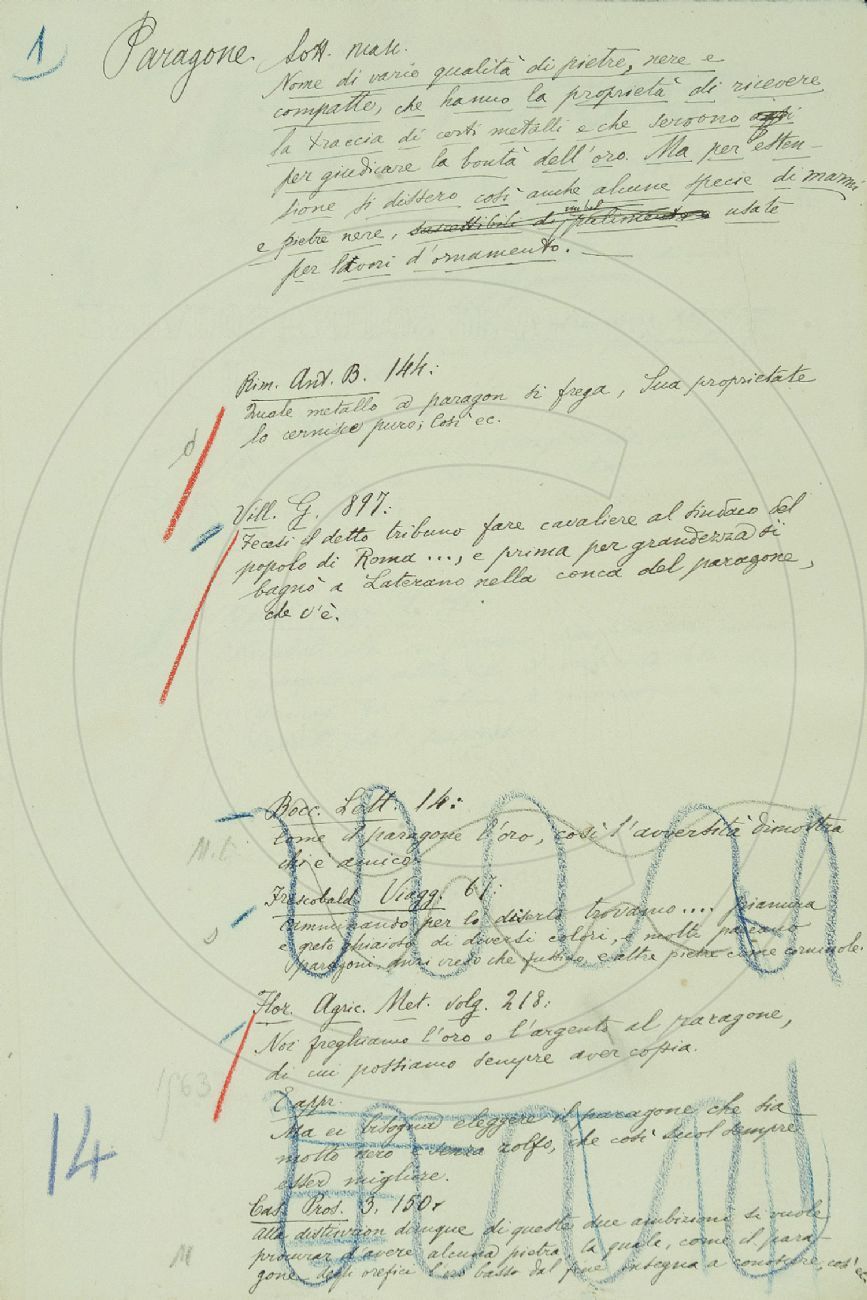 1
Paragone. Sost. masc.
Nome di varie qualità di pietre, nere e
compatte, che hanno la proprietà di ricevere
la traccia di certi metalli e che servono
per giudicare la bontà dell'oro. Ma per esten-
sione si dissero così anche alcune specie di marmi
e pietre nere, suscettibili di pulimento usate
per lavori d'ornamento. —
Rim. Ant. B. 144:
Quale metallo a paragon si frega, Sua proprietate
lo cernisce puro; Così ec.
d
Vill. G. 897:
Fecesi il detto tribuno fare cavaliere al sindaco del
popolo di Roma ..., e prima per grandezza si
bagnò a Laterano nella conca del paragone,
che v'è.
Bocc. Lett. 14:
Come il paragone l'oro, così l'avversità dimostra
chi è amico.
Frescobald. Viagg. 67:
Camminando per lo diserto trovamo .... pianura
e greto ghiaioso di diversi colori, e molte pareano
paragoni, anzi credo che fussino, e altre pietre come corniuole.
s
Flor. Agric. Met. volg. 218:
Noi freghiamo l'oro o l'argento al paragone,
di cui possiamo sempre aver copia.
E appr.
Ma ci bisogna eleggere il paragone che sia
molto nero e senza zolfo, che così suol sempre
esser migliore.
14
Cas. Pros. 3, 150:
Alla distinzion dunque di queste due ambizioni si vuole
procurar d'avere alcuna pietra, la quale, come il para-
gone degli orefici l'oro basso dal fine insegna a conoscere, così ec.
M